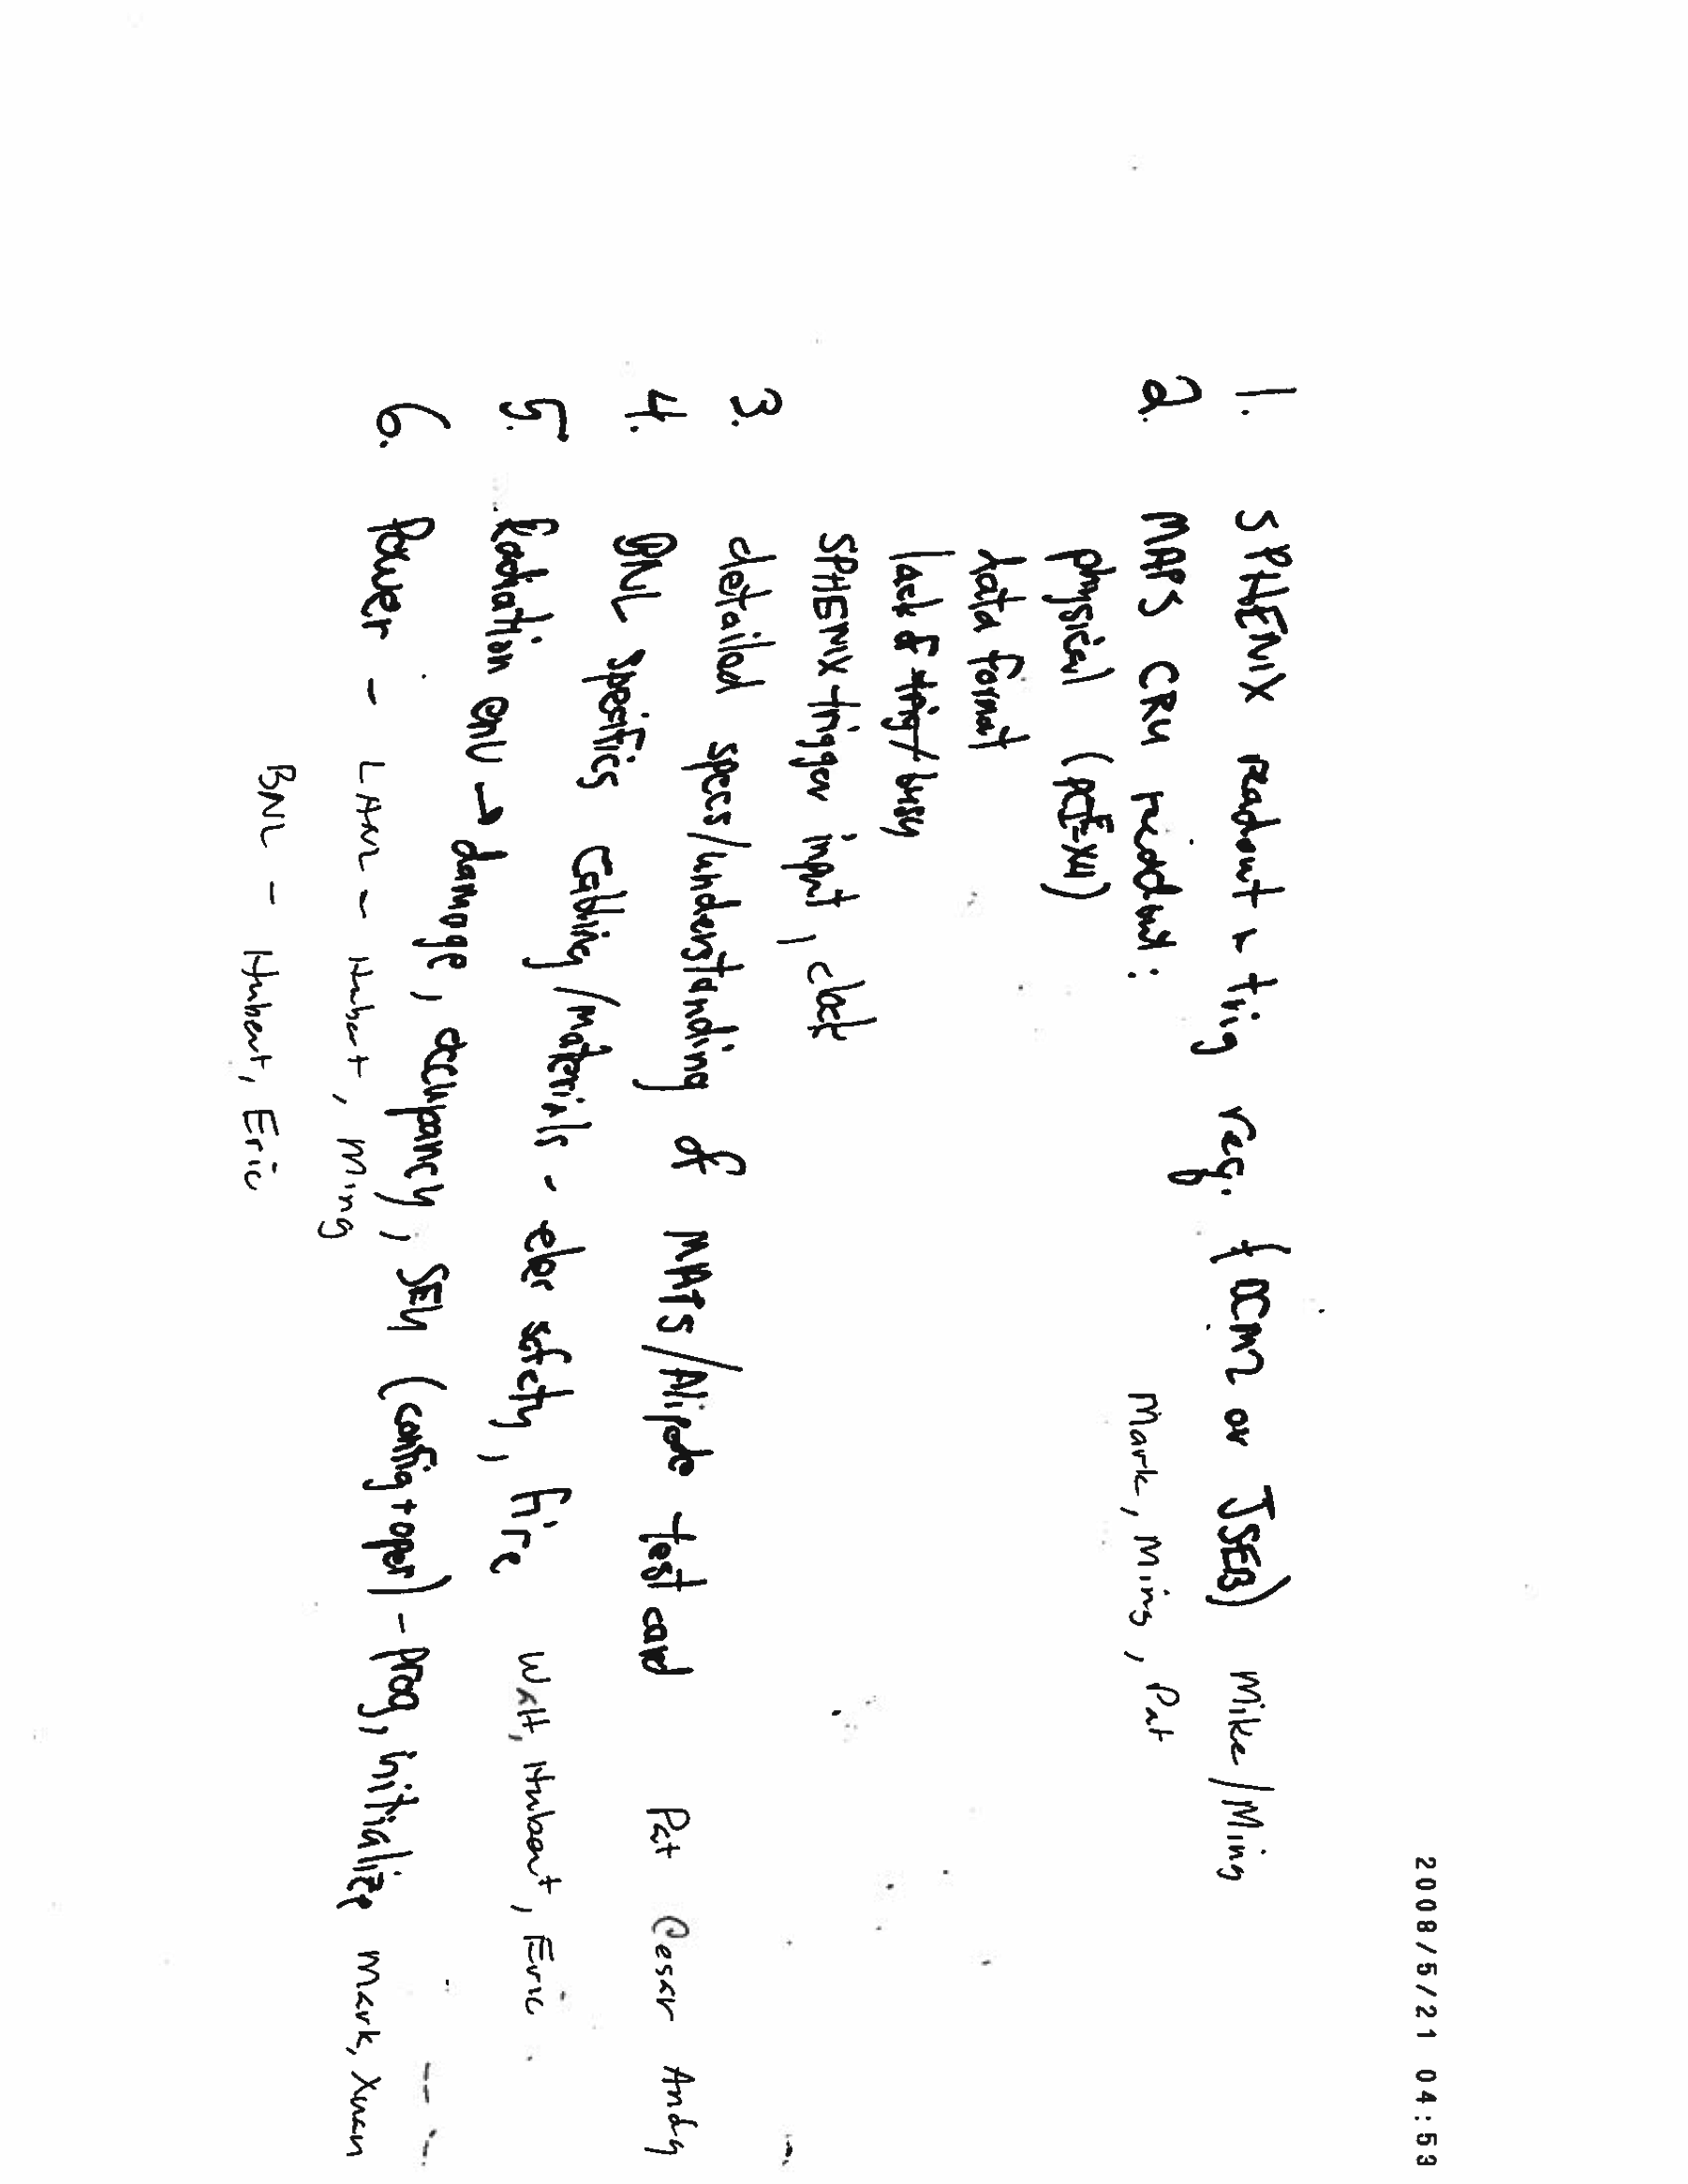 2008/5/21 04:53
1. SPHENIX readout & trig req. (DCM2 or JSEB) Mike/Ming
2. MAPS CRU readout: Mark, Ming, Pat
physical (PCIE-X4)
data format
lack of trig/busy
SPHENIX trigger input, clock
3. detailed specs/understanding of MAPS/Alipode test card Pat Cesar Andy
4. BNL specifics Cabling/Materials - elec safety, fire Walt, Hubert, Eric
5. Radiation env → damage, occupancy, SEU (config + oper) - prog, initialize Mark, Xuan
6. Power - LANL - Hubert, Ming
BNL - Hubert, Eric